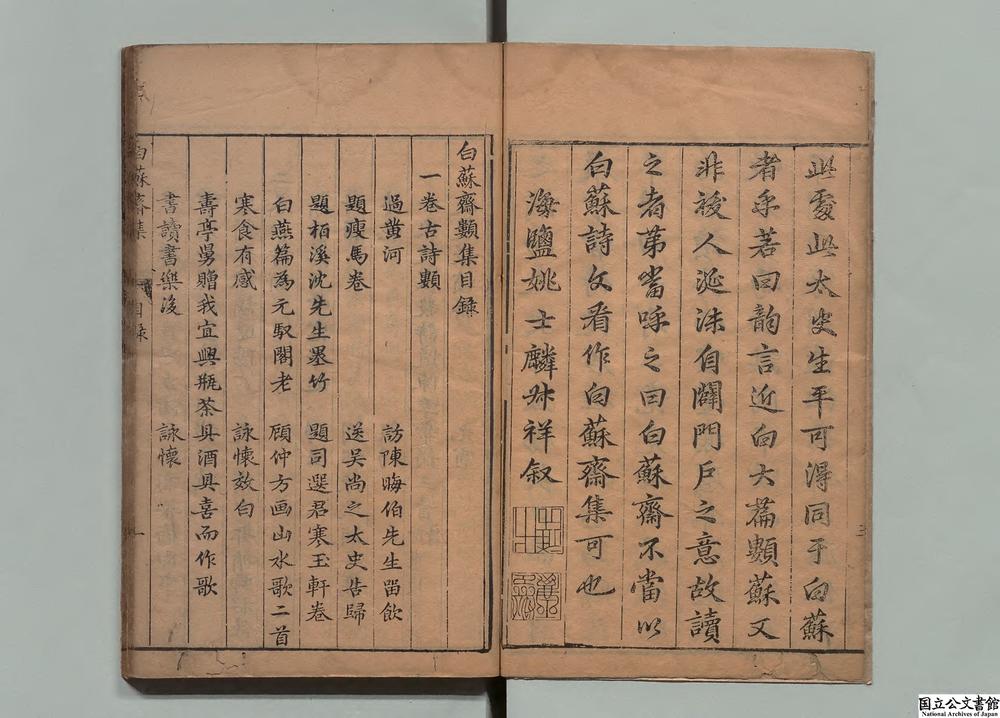 此處此太史生平可得同于白蘇
者乎若曰韵言近白大篇類蘇又
非後人涎沫自闢門戶之意故讀
之者苐當呼之曰白蘇齋不當以
白蘇詩文看作白蘇齋集可也
海鹽姚士麟叔祥叙
白蘇齋類集目錄
一卷古詩類
過黄河 訪陳晦伯先生畱飲
題瘦馬卷 送吴尚之太史告歸
題栢溪沈先生墨竹 題司選君寒玉軒卷
白燕篇為元馭閣老 顧仲方画山水歌二首
寒食有感 詠懷效白
壽亭舅贈我宜興瓶茶具酒具喜而作歌
書讀書樂後 詠懷
白蘇齋集 目錄 一
国立公文書館
National Archives of Japan